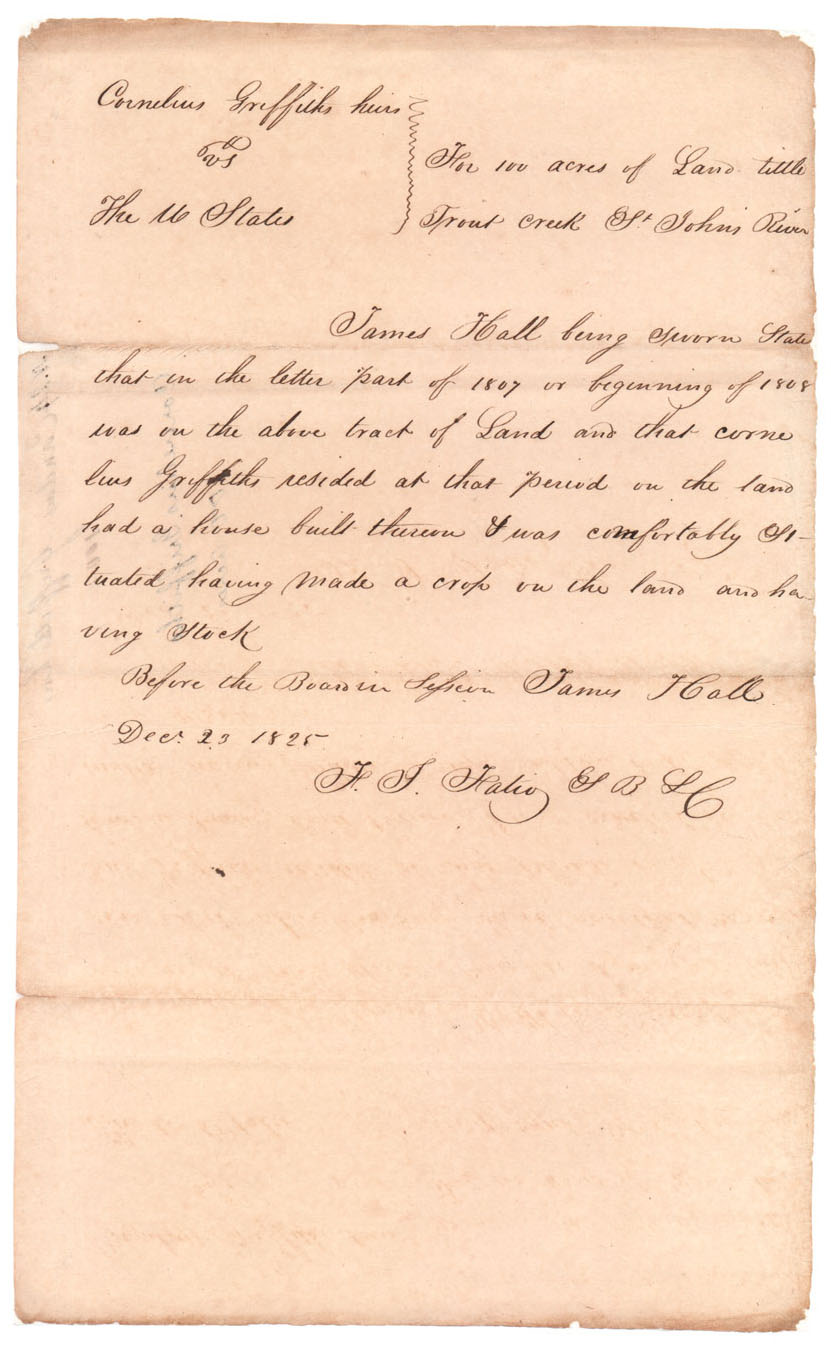 Cornelius Griffiths heirs
vs
The U States
For 100 acres of Land little
Trout Creek St Johns River
James Hall being sworn State
that in the letter part of 1807 or beginning of 1808
was on the above tract of Land and that corne
lius Griffiths resided at that period on the land
had a house built thereon & was comfortably Si-
tuated having made a crop on the land and ha-
ving Stock
Before the Board in Session James Hall
Decr 23 1825
F. J. Fatio S B L C